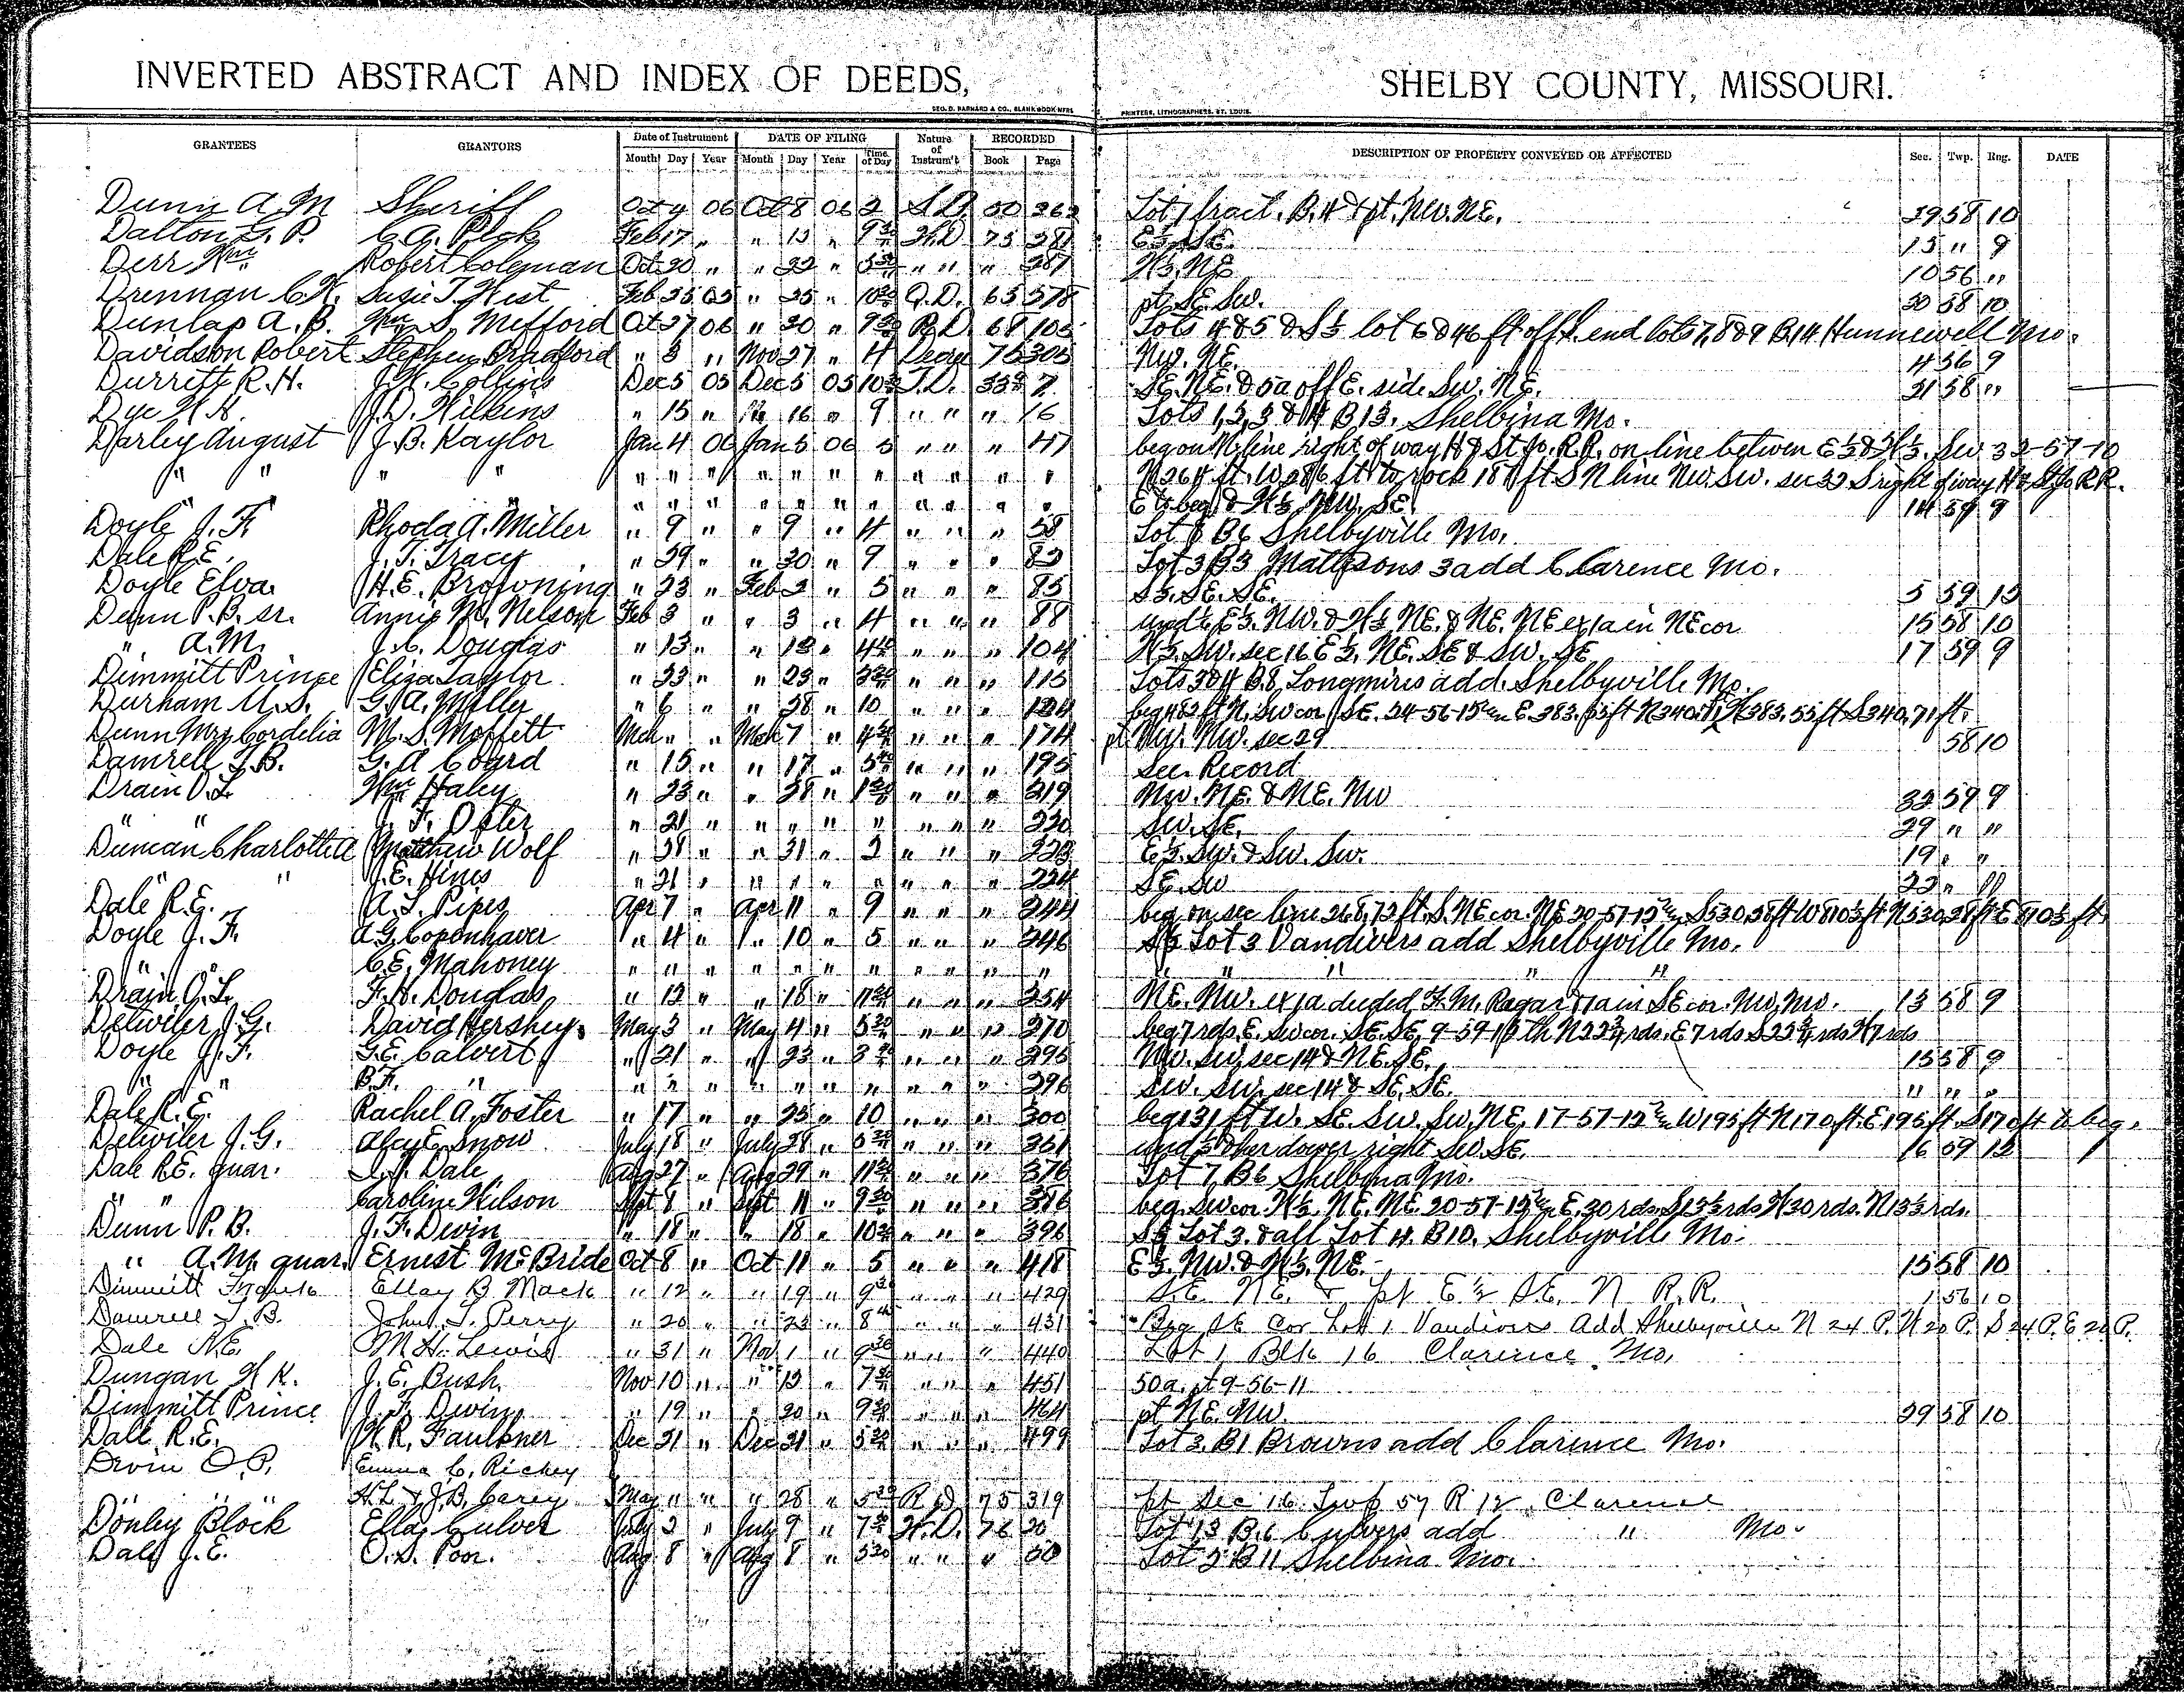 INVERTED ABSTRACT AND INDEX OF DEEDS, SHELBY COUNTY, MISSOURI.
GEO. D. BARNARD & CO., BLANK BOOK MFRS. PRINTERS, LITHOGRAPHERS, ST. LOUIS.
GRANTEES GRANTORS Date of Instrument DATE OF FILING Nature of Instrum't RECORDED DESCRIPTION OF PROPERTY CONVEYED OR AFFECTED Sec. Twp. Rng. DATE
Month Day Year Month Day Year Time of Day Book Page
Dunn A. M Sheriff Oct 4 06 Oct 8 06 2 S.D. 50 Lot 7 fract. B. 4 & pt. NW. NE. 29 58 10
Dalton G. P. Feb 17 " " 13 " 9 30 W.D. 75 281 E½ SE. 13 " 9
Derr Wm Robert Coleman Oct 20 " " 22 " " " " 287 W½ NE 10 56 "
Drennan C. W. Susie T. West Feb " 25 " Q.D. 65 578 pt SE SW. 30 58 10
Dunlap A. B. Wm S. Mefford Oct 27 06 " 30 " 9 R.D. 68 105 Lots 4 & 5 & S½ lot 6 & 46 ft off end lots 7, 8 & 9 B 14 Hunnewell Mo.
Davidson Robert Stephen Bradford " 3 " Nov 27 " 4 75 305 NW. NE. 4 56 9
Durrett R. H. J. W. Collins Dec 5 05 Dec 5 05 10 T.D. 7 SE. NE. & 5 a off E. side SW. NE. 21 58 "
Dye W. H. J. D. Wilkins " 15 " " 16 " 9 " " " 16 Lots 1, 2, 3 & 4 B 13. Shelbina Mo.
Darley August J. B. Kaylor Jan 4 06 Jan 5 06 5 " " " 47 beg on N. line right of way H & St Jo. R.R. on line between E½ & W½. SW 32-57-10
" " " " " " " " " " " " " " " N 264 ft. W to rock 187 ft S N line NW. SW. sec 32 S right of way H & St Jo R.R.
" " " " " " " " " " " E to beg & W½ NW. SE. 14 59 9
Doyle J. F. Rhoda A. Miller " 9 " " 9 " 4 " " " 58 Lot 8 B 6 Shelbyville Mo.
Dale R. E. J. T. Tracy " 29 " " 30 " 9 " " " 83 Lot 3 B 3 Mattisons 3 add Clarence Mo.
Doyle Elva H. E. Browning " 23 " Feb 2 " 5 " " " 85 S½. SE. SE. 5 59 12
Dunn P. B. sr. Annie M. Nelson Feb 3 " " 3 " 4 " " " 88 E½. NW. & W½ NE. & NE. NE ex 1 a in NE cor 15 58 10
" A. M. J. C. Douglas " 13 " " 13 " 4 " " " 104 W½. SW. sec 16 E½. NE. SE & SW. SE 17 59 9
Dimmitt Prince Eliza Taylor " 23 " " 23 " " " " 115 Lots 3 & 4 B. 8, Longmires add. Shelbyville Mo.
Durham U. S. G. A. Miller " 6 " " 28 " 10 " " " beg 482 ft N. SW cor SE. 24-56-12 E. 383.55 ft N 340.71 W 383.55 ft S 340.71 ft.
Dunn Mrs Cordelia M. S. Moffett Mch " " Mch 7 " 4 " " " 174 pt NW. NW. sec 29 58 10
Damrell T. B. G. A. Coard " 15 " " 17 " 5 " " " 195 See Record
Drain O. L Wm Haley " 23 " " 28 " 1 " " " 219 NW. NE. & NE. NW 32 59 9
" " J. F. Osler " 21 " " " " " " " " 220 SW. SE. 29 " "
Duncan Charlotte A Matthew Wolf " 28 " " 31 " 2 " " " 223 E½. SW. & SW. SW. 19 " "
" " J. E. Hines " 21 " " " " " " " " 224 SE. SW 22 " "
Dale R. E. A. L. Pipes Apr 7 " Apr 11 " 9 " " " 244 beg on sec line 268.72 ft. S. NE cor. NE 20-57-12 S 530.28 ft W 810½ ft N 530.28 ft E 810½ ft
Doyle J. F. A. G. Copenhaver " 4 " " 10 " 5 " " " 246 S½ Lot 3 Vandivers add Shelbyville Mo.
" " C. E. Mahoney " " " " " " " " " " " " " " " "
Drain O. L. F. H. Douglas " 12 " " 18 " " " " 254 NE. NW. ex 1 a deeded F. M. Ragar & 1 a in SE cor. NW, NW. 13 58 9
Detwiler J. G. David Hershey. May 3 " May 4 " 5 " " " 270 beg 7 rds. E. SW cor. SE. SE. 9-59-12 th N 22¾ rds. E 7 rds S 22¾ rds W 7 rds
Doyle J. F. G. E. Calvert " 21 " " 23 " " " " 295 NW. SW. sec 14 & NE. SE. 15 58 9
" " B. F. " " " " " " " " " " " 296 SW. SW. sec 14 & SE. SE. " " "
Dale R. E. Rachel A. Foster " 17 " " 25 " 10 " " " 300 beg 131 ft W. SE. SW. SW. NE. 17-57-12 W 195 ft N 170 ft. E 195 ft. S 170 ft to beg.
Detwiler J. G. Alcy E. Snow July 18 " July 28 " " " " 361 her dower right SW. SE. 16 59 12
Dale R. E. guar. Dale Aug 27 " Aug 29 " 11 " " " 376 Lot 7, B 6 Shelbina Mo.
" " Caroline Wilson Sept 8 " Sept 11 " 9 " " " 386 beg. SW cor. W½. NE. NE. 20-57-12 E. 30 rds. S 13⅓ rds W 30 rds. N 13⅓ rds.
Dunn P. B. J. F. Dewin " 18 " " 18 " 10 " " " 396 S½ Lot 3. & all Lot 4. B 10. Shelbyville Mo.
" A. M. guar. Ernest McBride Oct 8 " Oct 11 " 5 " " " 418 E½. NW. & W½. NE. 15 58 10
Dimmitt Ellay B. Mack " 12 " " 19 " 9 30 " " " 429 S.E. N.E. & pt E½ S.E. N R.R. 1 56 10
Damrell T. B. John T. Perry " 20 " " 23 " 8 " " " 431 Beg SE Cor Lot 1 Vandivers Add Shelbyville N 24 P. W 20 P. S 24 P. E 20 P.
Dale R.E. M H. Lewis " 31 " Nov 1 " 9 30 " " " 440 Lot 1 Blk 16 Clarence Mo.
Dungan W K. J. E. Bush. Nov 10 " " 13 " 7 " " " 451 50 a. pt 9-56-11
Dimmitt Prince J. F. Dewin " 19 " " 20 " 9 " " " 464 pt NE. NW. 29 58 10
Dale R. E. W. R. Faulkner Dec 21 " Dec 21 " 5 " " " 499 Lot 2. B 1 Browns add Clarence Mo.
Ervin O. P. Emma C. Richey
" " " H. L & J. B. Carey May 11 " " 28 " 5 R D 75 319 pt Sec 16 Twp 57 R 12 Clarence
Donley Block Ella Culver July 2 " July 9 " 7 W.D. 76 20 Lot 13 B. 6 Culvers add " Mo.
Dale J. E. O. S. Poor. Aug 8 " Aug 8 " 5 30 " " " 50 Lot 2 B 11 Shelbina Mo.